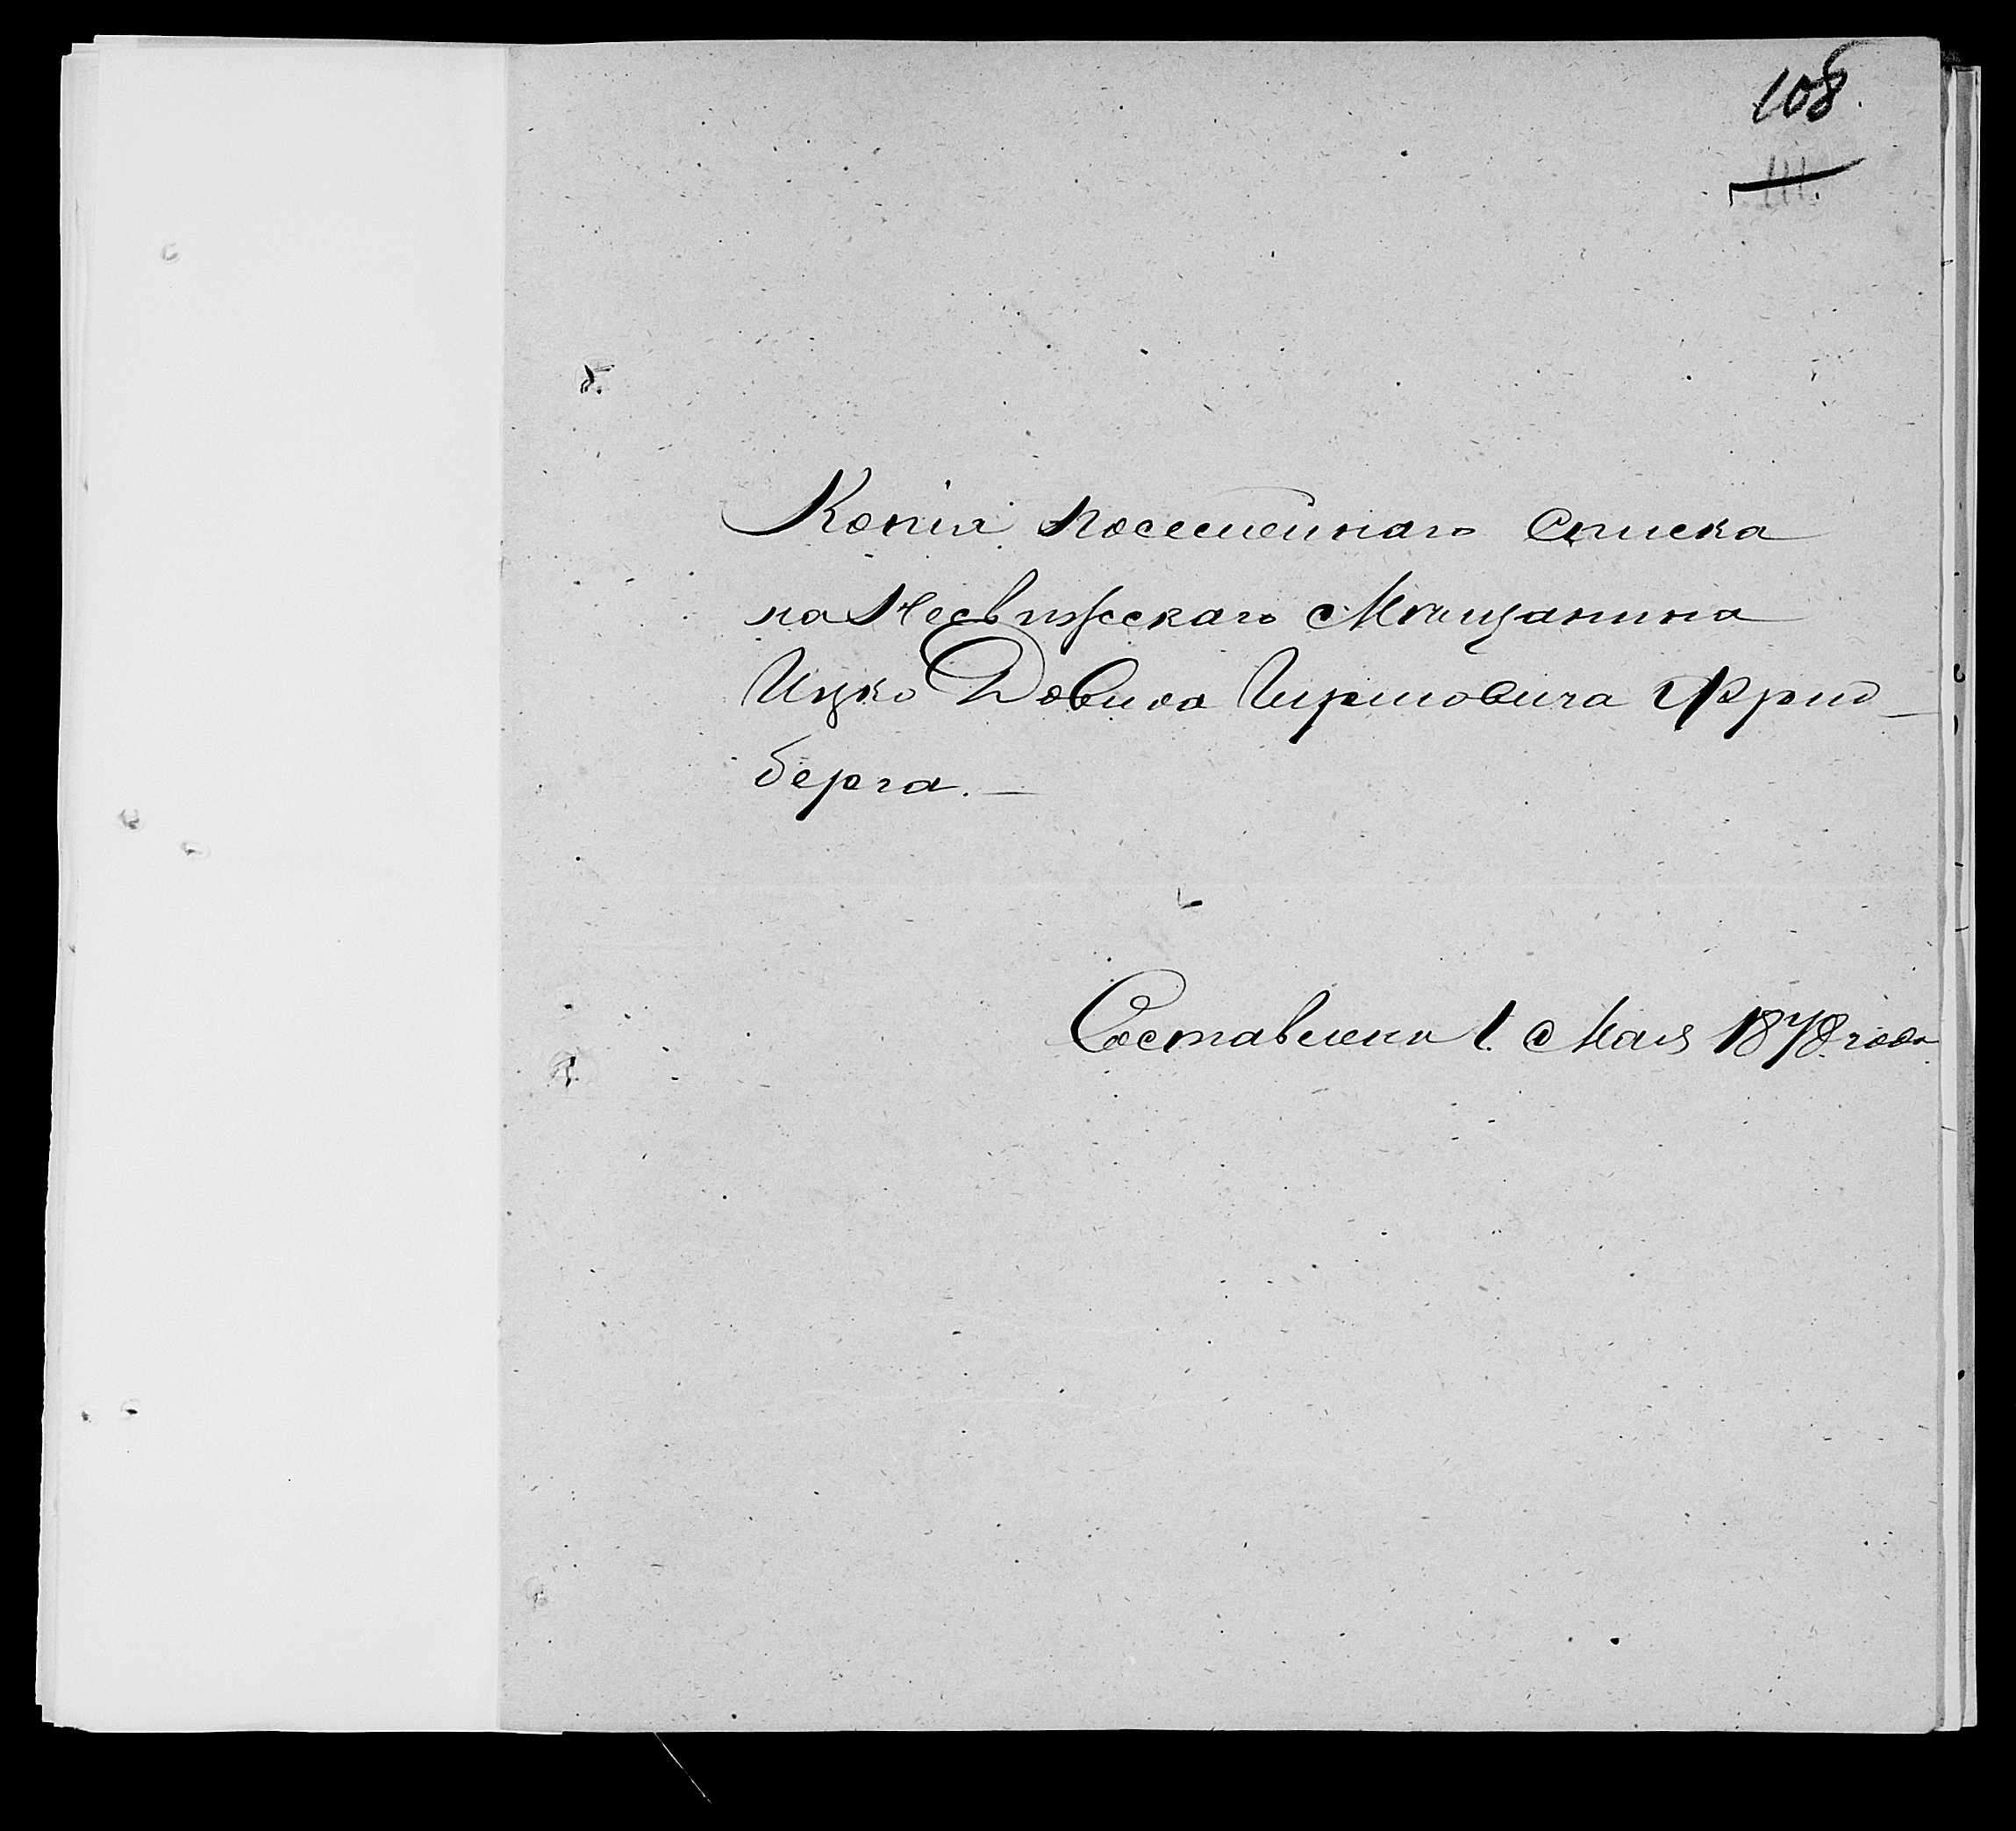 108.
111.
Копія посемейнаго списка
на Несвижскаго Мѣщанина
Ицко Довида Гиршовича Фрид-
берга. —
Составлена 1. Мая 1878 года